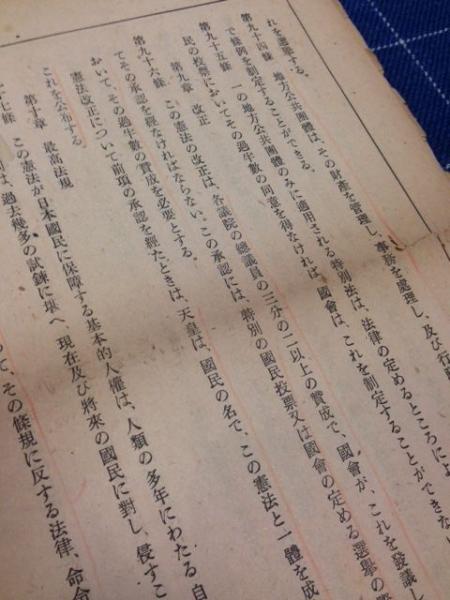 れを選擧する。
第九十四條　地方公共團體は、その財產を管理し、事務を處理し、及び行
で條例を制定することができる。
第九十五條　一の地方公共團體のみに適用される特別法は、法律の定めるところによ
民の投票においてその過半數の同意を得なければ、國會は、これを制定することができない
第九章　改正
第九十六條　この憲法の改正は、各議院の總議員の三分の二以上の贊成で、國會が、これを發議し
てその承認を經なければならない。この承認には、特別の國民投票又は國會の定める選擧の際
おいて、その過半數の贊成を必要とする。
憲法改正について前項の承認を經たときは、天皇は、國民の名で、この憲法と一體を成
これを公布する
第十章　最高法規
十七條　この憲法が日本國民に保障する基本的人權は、人類の多年にわたる自
は、過去幾多の試鍊に堪へ、現在及び將來の國民に對し、侵すこ
て、その條規に反する法律、命令